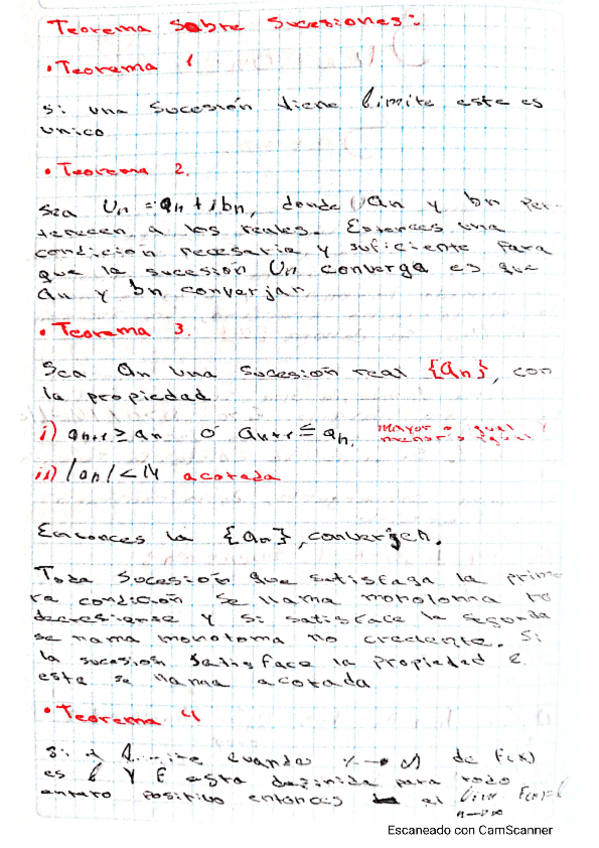 Teorema Sobre Sucesiones:
• Teorema 1
Si una Sucesión tiene limite este es
unico
• Teorema 2.
Sea Un = an + ibn, donde an y bn per-
tenecen a los reales. Entonces una
condición necesaria y suficiente para
que la sucesión Un converga es que
an y bn converjan
• Teorema 3.
Sea an una Sucesión real {an}, con
la propiedad
i) an+1 ≥ an ó an+1 ≤ an, mayor o igual y
menor o igual
ii) |an| < N acotada
Entonces la {an}, converjen.
Toda Sucesión que satisfaga la prime-
ra condición se llama
y si satisface la segunda
se llama no creciente. Si
la sucesión satisface la propiedad 2
este se llama acotada
• Teorema 4
Si limite cuando x→∞ de F(x)
es l y F esta definida para todo
entero positivo entonces el lim F(n)=l
n→∞
Escaneado con CamScanner